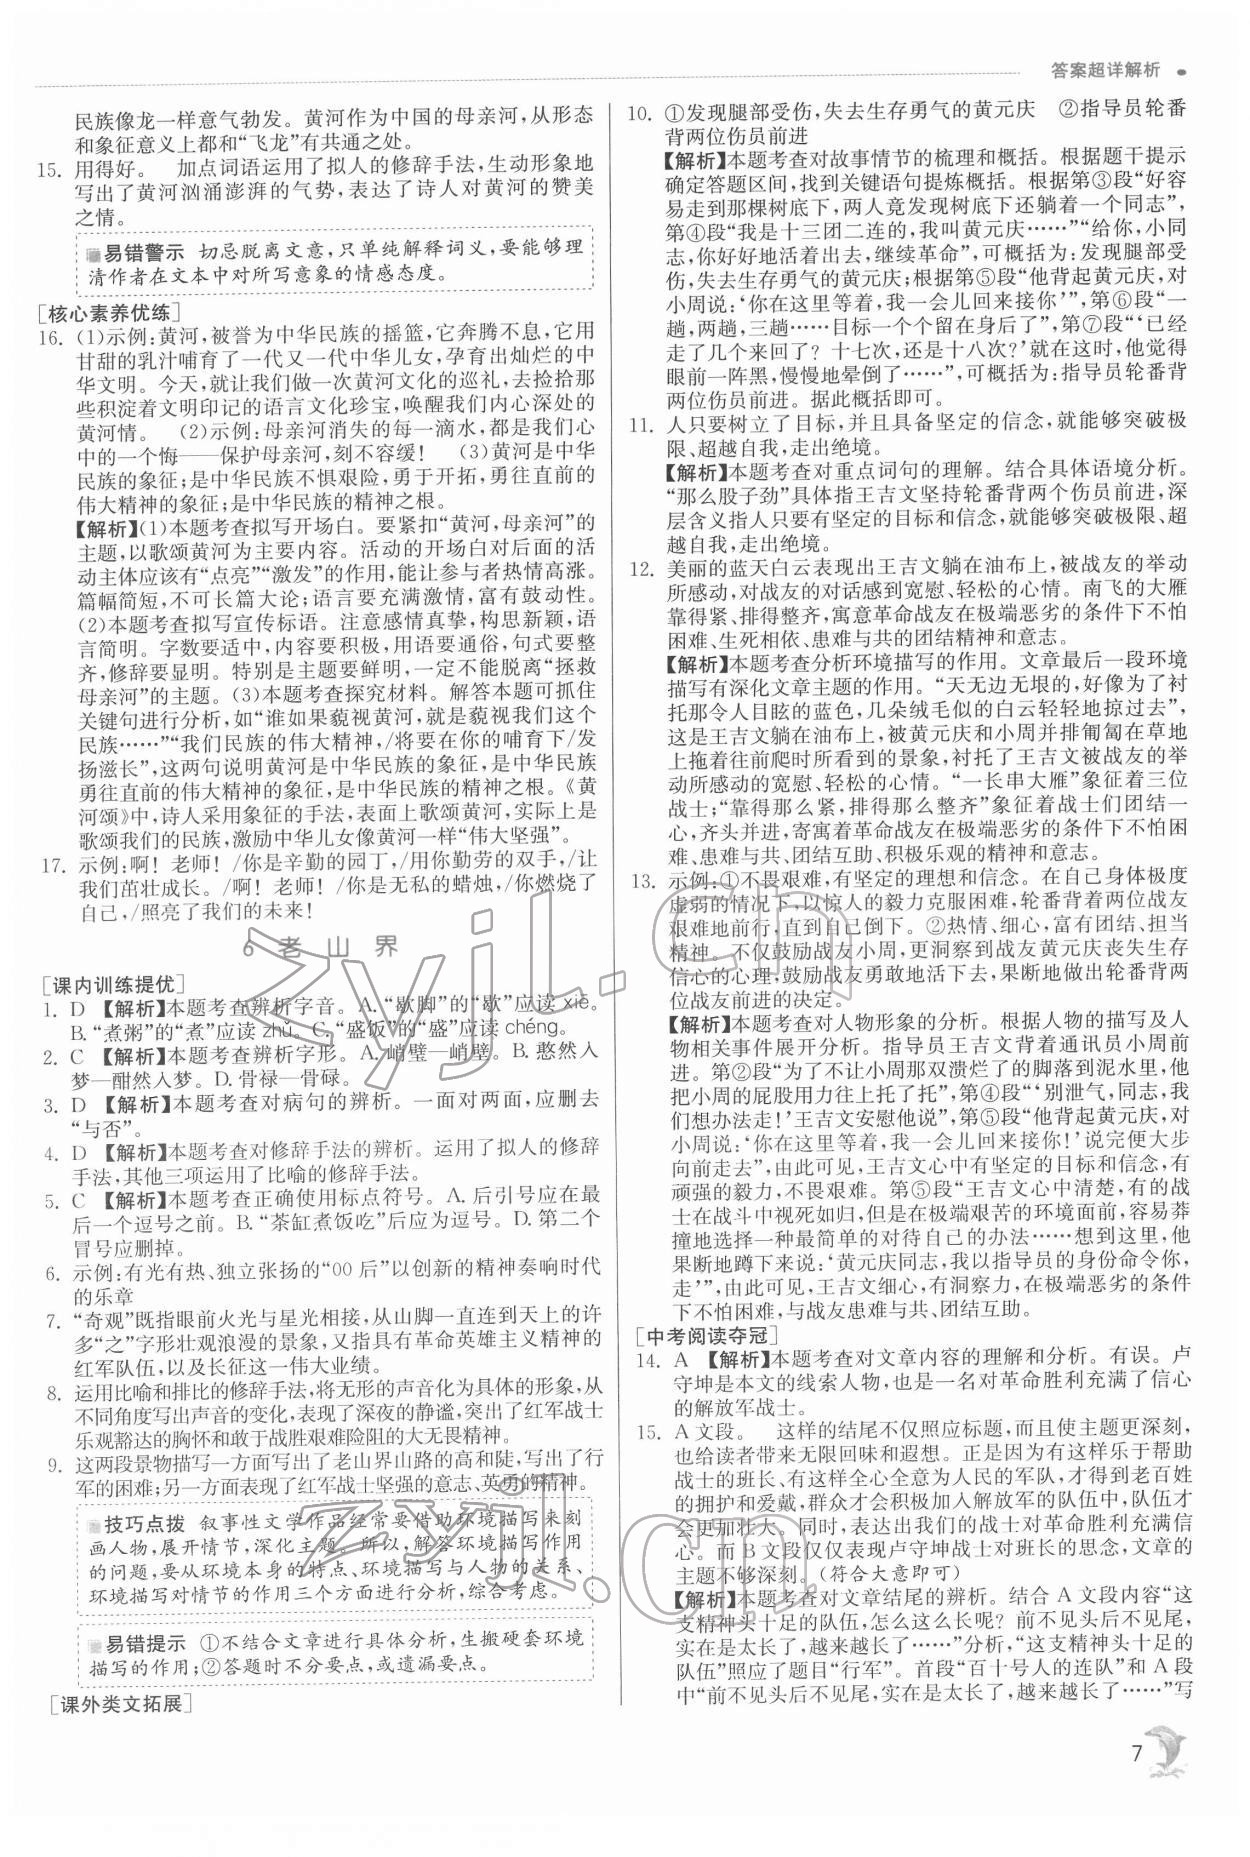 答案超详解析
民族像龙一样意气勃发。黄河作为中国的母亲河,从形态
和象征意义上都和“飞龙”有共通之处。
15. 用得好。 加点词语运用了拟人的修辞手法,生动形象地
写出了黄河汹涌澎湃的气势,表达了诗人对黄河的赞美
之情。
易错警示 切忌脱离文意,只单纯解释词义,要能够理
清作者在文本中对所写意象的情感态度。
[核心素养优练]
16. (1)示例:黄河,被誉为中华民族的摇篮,它奔腾不息,它用
甘甜的乳汁哺育了一代又一代中华儿女,孕育出灿烂的中
华文明。今天,就让我们做一次黄河文化的巡礼,去捡拾那
些积淀着文明印记的语言文化珍宝,唤醒我们内心深处的
黄河情。 (2)示例:母亲河消失的每一滴水,都是我们心
中的一个悔——保护母亲河,刻不容缓! (3)黄河是中华
民族的象征;是中华民族不惧艰险,勇于开拓,勇往直前的
伟大精神的象征;是中华民族的精神之根。
【解析】(1)本题考查拟写开场白。要紧扣“黄河,母亲河”的
主题,以歌颂黄河为主要内容。活动的开场白对后面的活
动主体应该有“点亮”“激发”的作用,能让参与者热情高涨。
篇幅简短,不可长篇大论;语言要充满激情,富有鼓动性。
(2)本题考查拟写宣传标语。注意感情真挚,构思新颖,语
言简明。字数要适中,内容要积极,用语要通俗,句式要整
齐,修辞要显明。特别是主题要鲜明,一定不能脱离“拯救
母亲河”的主题。(3)本题考查探究材料。解答本题可抓住
关键句进行分析,如“谁如果藐视黄河,就是藐视我们这个
民族……”“我们民族的伟大精神,/将要在你的哺育下/发
扬滋长”,这两句说明黄河是中华民族的象征,是中华民族
勇往直前的伟大精神的象征,是中华民族的精神之根。《黄
河颂》中,诗人采用象征的手法,表面上歌颂黄河,实际上是
歌颂我们的民族,激励中华儿女像黄河一样“伟大坚强”。
17. 示例:啊! 老师! /你是辛勤的园丁,/用你勤劳的双手,/让
我们茁壮成长。/啊! 老师! /你是无私的蜡烛,/你燃烧了
自己,/照亮了我们的未来!
6 老山界
[课内训练提优]
1. D 【解析】本题考查辨析字音。A.“歇脚”的“歇”应读 xiē。
B.“煮粥”的“煮”应读 zhǔ。C.“盛饭”的“盛”应读 chéng。
2. C 【解析】本题考查辨析字形。A. 峭璧—峭壁。B. 憨然入
梦—酣然入梦。D. 骨禄—骨碌。
3. D 【解析】本题考查对病句的辨析。一面对两面,应删去
“与否”。
4. D 【解析】本题考查对修辞手法的辨析。运用了拟人的修辞
手法,其他三项运用了比喻的修辞手法。
5. C 【解析】本题考查正确使用标点符号。A. 后引号应在最
后一个逗号之前。B.“茶缸煮饭吃”后应为逗号。D. 第二个
冒号应删掉。
6. 示例:有光有热、独立张扬的“00 后”以创新的精神奏响时代
的乐章
7. “奇观”既指眼前火光与星光相接,从山脚一直连到天上的许
多“之”字形壮观浪漫的景象,又指具有革命英雄主义精神的
红军队伍,以及长征这一伟大业绩。
8. 运用比喻和排比的修辞手法,将无形的声音化为具体的形象,从
不同角度写出声音的变化,表现了深夜的静谧,突出了红军战士
乐观豁达的胸怀和敢于战胜艰难险阻的大无畏精神。
9. 这两段景物描写一方面写出了老山界山路的高和陡,写出了行
军的困难;另一方面表现了红军战士坚强的意志、英勇的精神。
技巧点拨 叙事性文学作品经常要借助环境描写来刻
画人物,展开情节,深化主题。所以,解答环境描写作用
的问题,要从环境本身的特点、环境描写与人物的关系、
环境描写对情节的作用三个方面进行分析,综合考虑。
易错提示 ①不结合文章进行具体分析,生搬硬套环境
描写的作用;②答题时不分要点,或遗漏要点。
[课外类文拓展]
10. ①发现腿部受伤,失去生存勇气的黄元庆 ②指导员轮番
背两位伤员前进
【解析】本题考查对故事情节的梳理和概括。根据题干提示
确定答题区间,找到关键语句提炼概括。根据第③段“好容
易走到那棵树底下,两人竟发现树底下还躺着一个同志”,
第④段“我是十三团二连的,我叫黄元庆……”“给你,小同
志,你好好地活着出去,继续革命”,可概括为:发现腿部受
伤,失去生存勇气的黄元庆;根据第⑤段“他背起黄元庆,对
小周说:‘你在这里等着,我一会儿回来接你’”,第⑥段“一
趟,两趟,三趟……目标一个个留在身后了”,第⑦段“‘已经
走了几个来回了? 十七次,还是十八次?’就在这时,他觉得
眼前一阵黑,慢慢地晕倒了……”,可概括为:指导员轮番背
两位伤员前进。据此概括即可。
11. 人只要树立了目标,并且具备坚定的信念,就能够突破极
限、超越自我,走出绝境。
【解析】本题考查对重点词句的理解。结合具体语境分析。
“那么股子劲”具体指王吉文坚持轮番背两个伤员前进,深
层含义指人只要有坚定的目标和信念,就能够突破极限、超
越自我,走出绝境。
12. 美丽的蓝天白云表现出王吉文躺在油布上,被战友的举动
所感动,对战友的对话感到宽慰、轻松的心情。南飞的大雁
靠得紧、排得整齐,寓意革命战友在极端恶劣的条件下不怕
困难、生死相依、患难与共的团结精神和意志。
【解析】本题考查分析环境描写的作用。文章最后一段环境
描写有深化文章主题的作用。“天无边无垠的,好像为了衬
托那令人目眩的蓝色,几朵绒毛似的白云轻轻地掠过去”,
这是王吉文躺在油布上,被黄元庆和小周并排匍匐在草地
上拖着往前爬时所看到的景象,衬托了王吉文被战友的举
动所感动的宽慰、轻松的心情。“一长串大雁”象征着三位
战士;“靠得那么紧,排得那么整齐”象征着战士们团结一
心,齐头并进,寄寓着革命战友在极端恶劣的条件下不怕困
难、患难与共、团结互助、积极乐观的精神和意志。
13. 示例:①不畏艰难,有坚定的理想和信念。在自己身体极度
虚弱的情况下,以惊人的毅力克服困难,轮番背着两位战友
艰难地前行,直到自己倒下。②热情、细心,富有革命、担当
精神。不仅鼓励战友小周,更洞察到战友黄元庆丧失生存
信心的心理;鼓励战友勇敢地活下去,果断地轮番背着两
位战友前进的决定。
【解析】本题考查对人物形象的分析。根据人物的描写及人
物相关事件展开分析。指导员王吉文背着通讯员小周前
进。第②段“为了不让小周那双溃烂了的脚落到泥水里,他
把小周的屁股用力往上托了托”,第④段“‘别泄气,同志,我
们想办法走!’王吉文安慰他说”,第⑤段“他背起黄元庆,对
小周说:‘你在这里等着,我一会儿回来接你!’说完便大步
向前走去”,由此可见,王吉文心中有坚定的目标和信念,有
顽强的毅力,不畏艰难。第⑤段“王吉文心中清楚,有的战
士在战斗中视死如归,但是在极端艰苦的环境面前,容易莽
撞地选择一种最简单的对待自己的办法……想到这里,他
果断地蹲下来说:‘黄元庆同志,我以指导员的身份命令你,
走’”,由此可见,王吉文细心,有洞察力,在极端恶劣的条件
下不怕困难,与战友患难与共、团结互助。
[中考阅读夺冠]
14. A 【解析】本题考查对文章内容的理解和分析。有误。卢
守坤是本文的线索人物,也是一名对革命胜利充满了信心
的解放军战士。
15. A 文段。 这样的结尾不仅照应标题,而且使主题更深刻,
也给读者带来无限回味和遐想。正是因为有这样乐于帮助
战士的班长、有这样全心全意为人民的军队,才得到老百姓
的拥护和爱戴,群众才会积极加入解放军的队伍中,队伍才
会更加壮大。同时,表达出我们的战士对革命胜利充满信
心。而 B 文段仅仅表现卢守坤战士对班长的思念,文章的
主题不够深刻。(符合大意即可)
【解析】本题考查对文章结尾的辨析。结合 A 文段内容“这
支精神头十足的队伍,怎么这么长呢? 前不见头后不见尾,
实在是太长了,越来越长了……”分析,“这支精神头十足的
队伍”照应了题目“行军”。首段“百十号人的连队”和 A 段
中“前不见头后不见尾,实在是太长了,越来越长了……”写
7
zyjl.cn
zyjl.cn